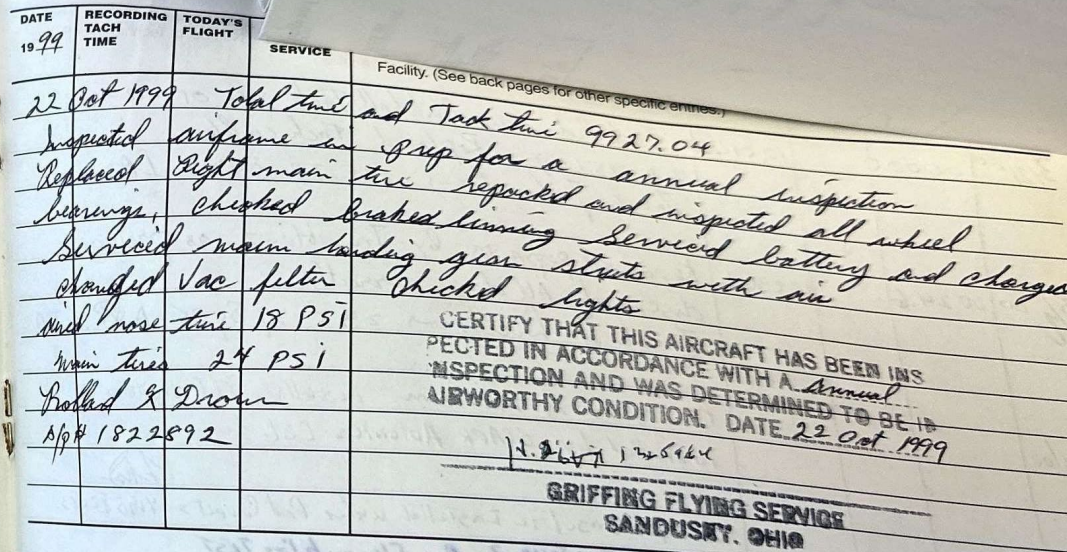 DATE
1999
RECORDING TACH TIME
TODAY'S FLIGHT
SERVICE
Facility. (See back pages for other specific entries.)
22 Oct 1999 Total time and Tach time 9927.04
Inspected airframe in prep for a annual inspection
Replaced Right main tire repacked and inspected all wheel
bearings, checked brake linning Serviced battery and charged
Serviced main landing gear struts with air
changed Vac filter checked lights
aired nose tire 18 PSI
main tires 24 PSI
A/P# 1822892
CERTIFY THAT THIS AIRCRAFT HAS BEEN INS
PECTED IN ACCORDANCE WITH A Annual
INSPECTION AND WAS DETERMINED TO BE IN
AIRWORTHY CONDITION. DATE 22 Oct 1999
GRIFFING FLYING SERVICE
SANDUSKY. OHIO